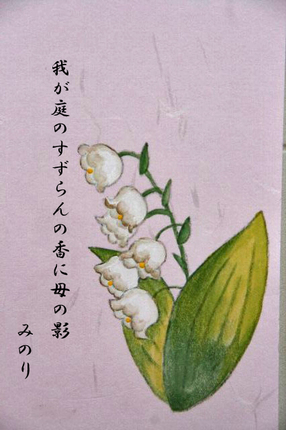 我が庭のすずらんの香に母の影
みのり